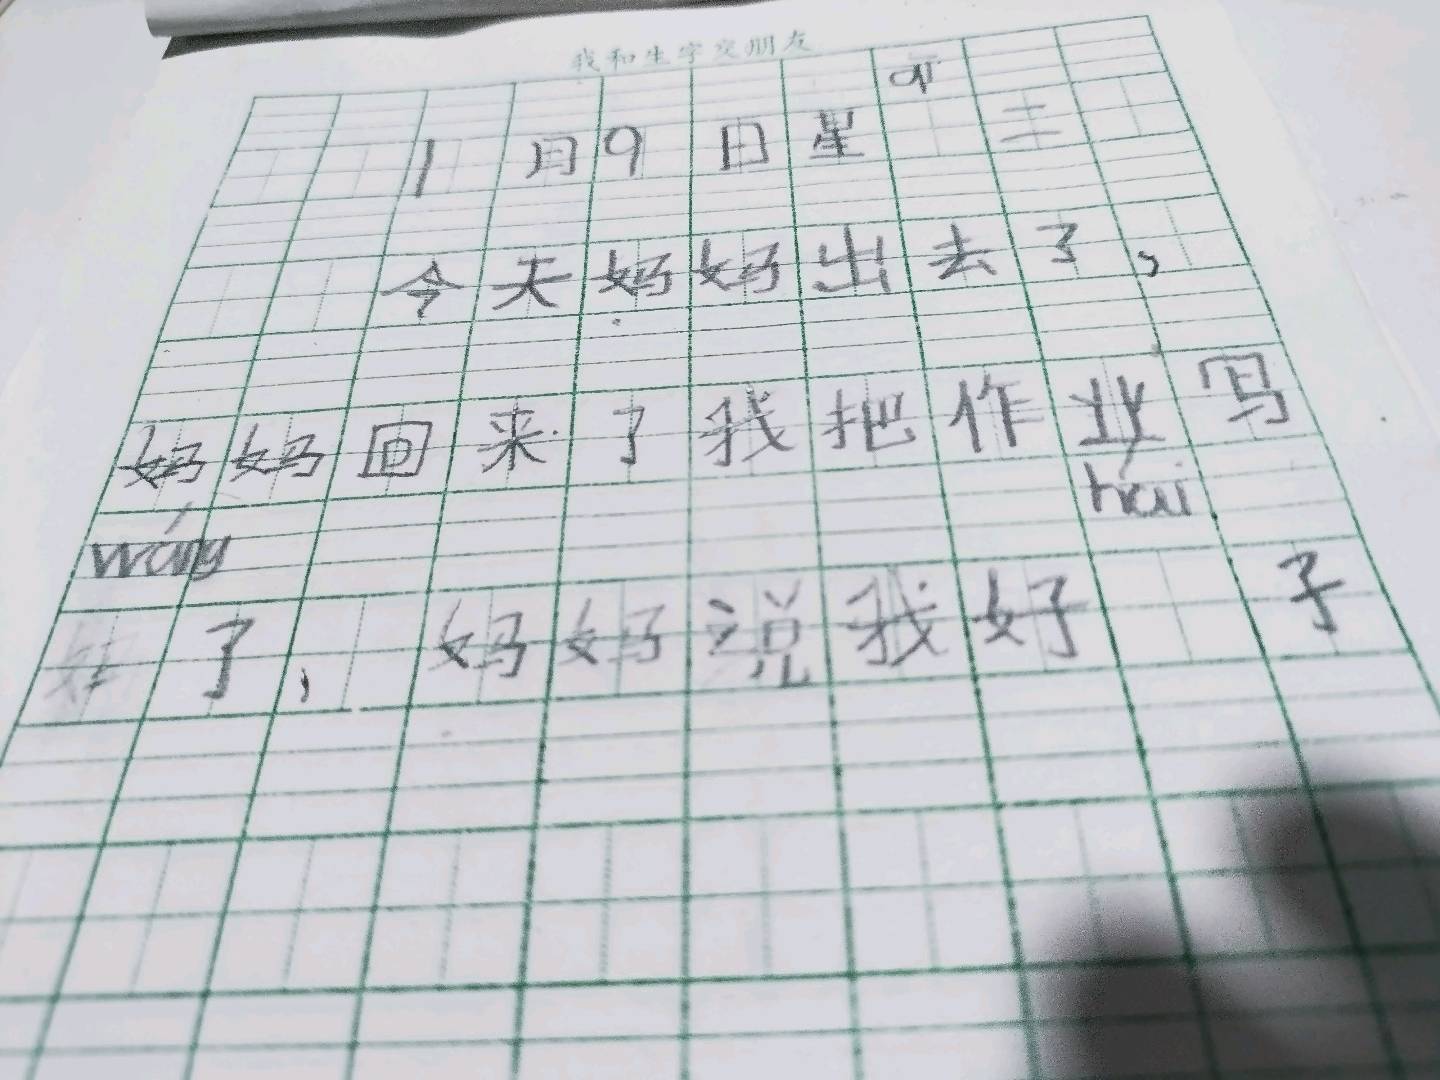 我和生字交朋友
qī
1月9日星 二
今天妈妈出去了,
妈妈回来了我把作业写
wáng hái
了, 妈妈说我好 子